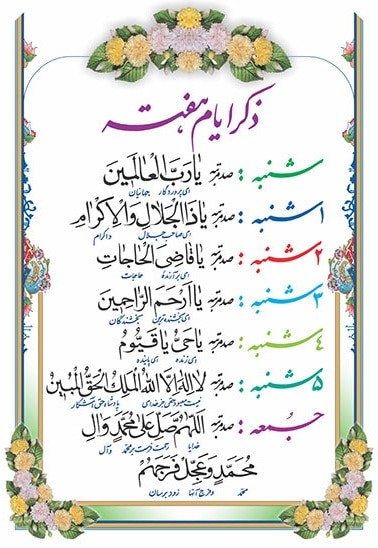 ذکر ایام هفته
شنبه : صد مرتبه یا رَبَّ الْعالَمین
ای پروردگار جهانیان
۱شنبه : صد مرتبه یا ذَالْجَلالِ وَالْاِکْرام
ای صاحب جلال و اکرام
۲شنبه : صد مرتبه یا قاضِیَ الْحاجات
ای برآورنده حاجات
۳شنبه : صد مرتبه یا اَرْحَمَ الرّاحِمین
ای بخشنده‌ترین بخشندگان
۴شنبه : صد مرتبه یا حَیُّ یا قَیّوُم
ای زنده ای پاینده
۵شنبه : صد مرتبه لا اِلهَ اِلَّا اللهُ الْمَلِکُ الْحَقُّ الْمُبین
نیست معبودی جز خدای پادشاه حق آشکار
جمعه : صد مرتبه اَللّهُمَّ صَلِّ عَلی مُحَمَّدٍ وَآلِ
خدایا رحمت فرست بر محمد و آل
مُحَمَّدٍ وَعَجِّلْ فَرَجَهُم
محمد و فرج آنها زود برسان